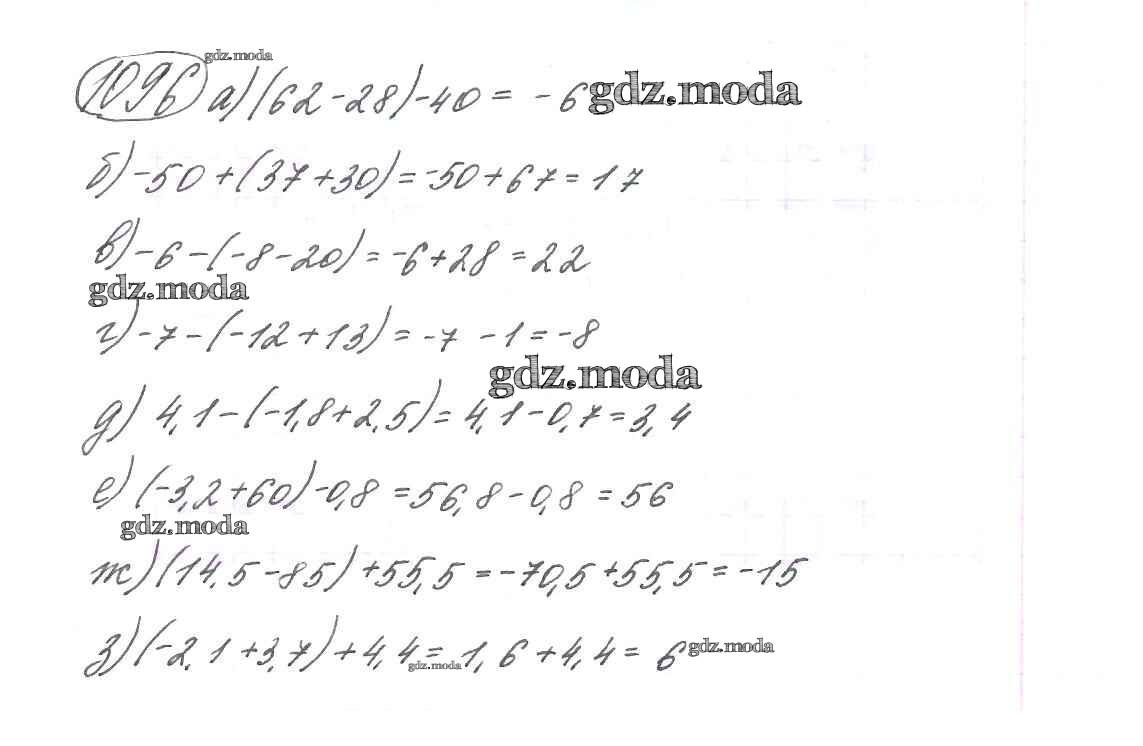 gdz.moda
1096 а) (62-28)-40 = -6 gdz.moda
б) -50+(37+30)=-50+67=17
в) -6-(-8-20)=-6+28=22
gdz.moda
г) -7-(-12+13)=-7-1=-8
gdz.moda
д) 4,1-(-1,8+2,5)=4,1-0,7=3,4
е) (-3,2+60)-0,8=56,8-0,8=56
gdz.moda
ж) (14,5-85)+55,5=-70,5+55,5=-15
з) (-2,1+3,7)+4,4=1,6+4,4=6 gdz.moda
gdz.moda